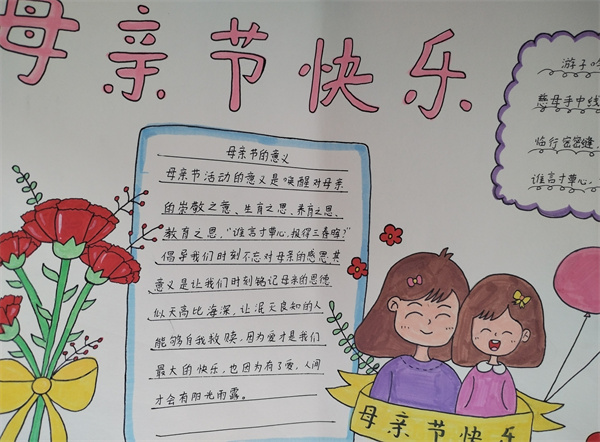 母亲节快乐
母亲节的意义
母亲节活动的意义是唤醒对母亲
的崇敬之意、生育之恩、养育之恩、
教育之恩，“谁言寸草心，报得三春晖？”
倡导我们时刻不忘对母亲的感恩其
意义是让我们时刻铭记母亲的恩德
似天高比海深，让泯灭良知的人
能够自我救赎，因为爱才是我们
最大的快乐，也因为有了爱，人间
才会有阳光雨露。
游子吟
慈母手中线
临行密密缝，
谁言寸草心，
母亲节快乐